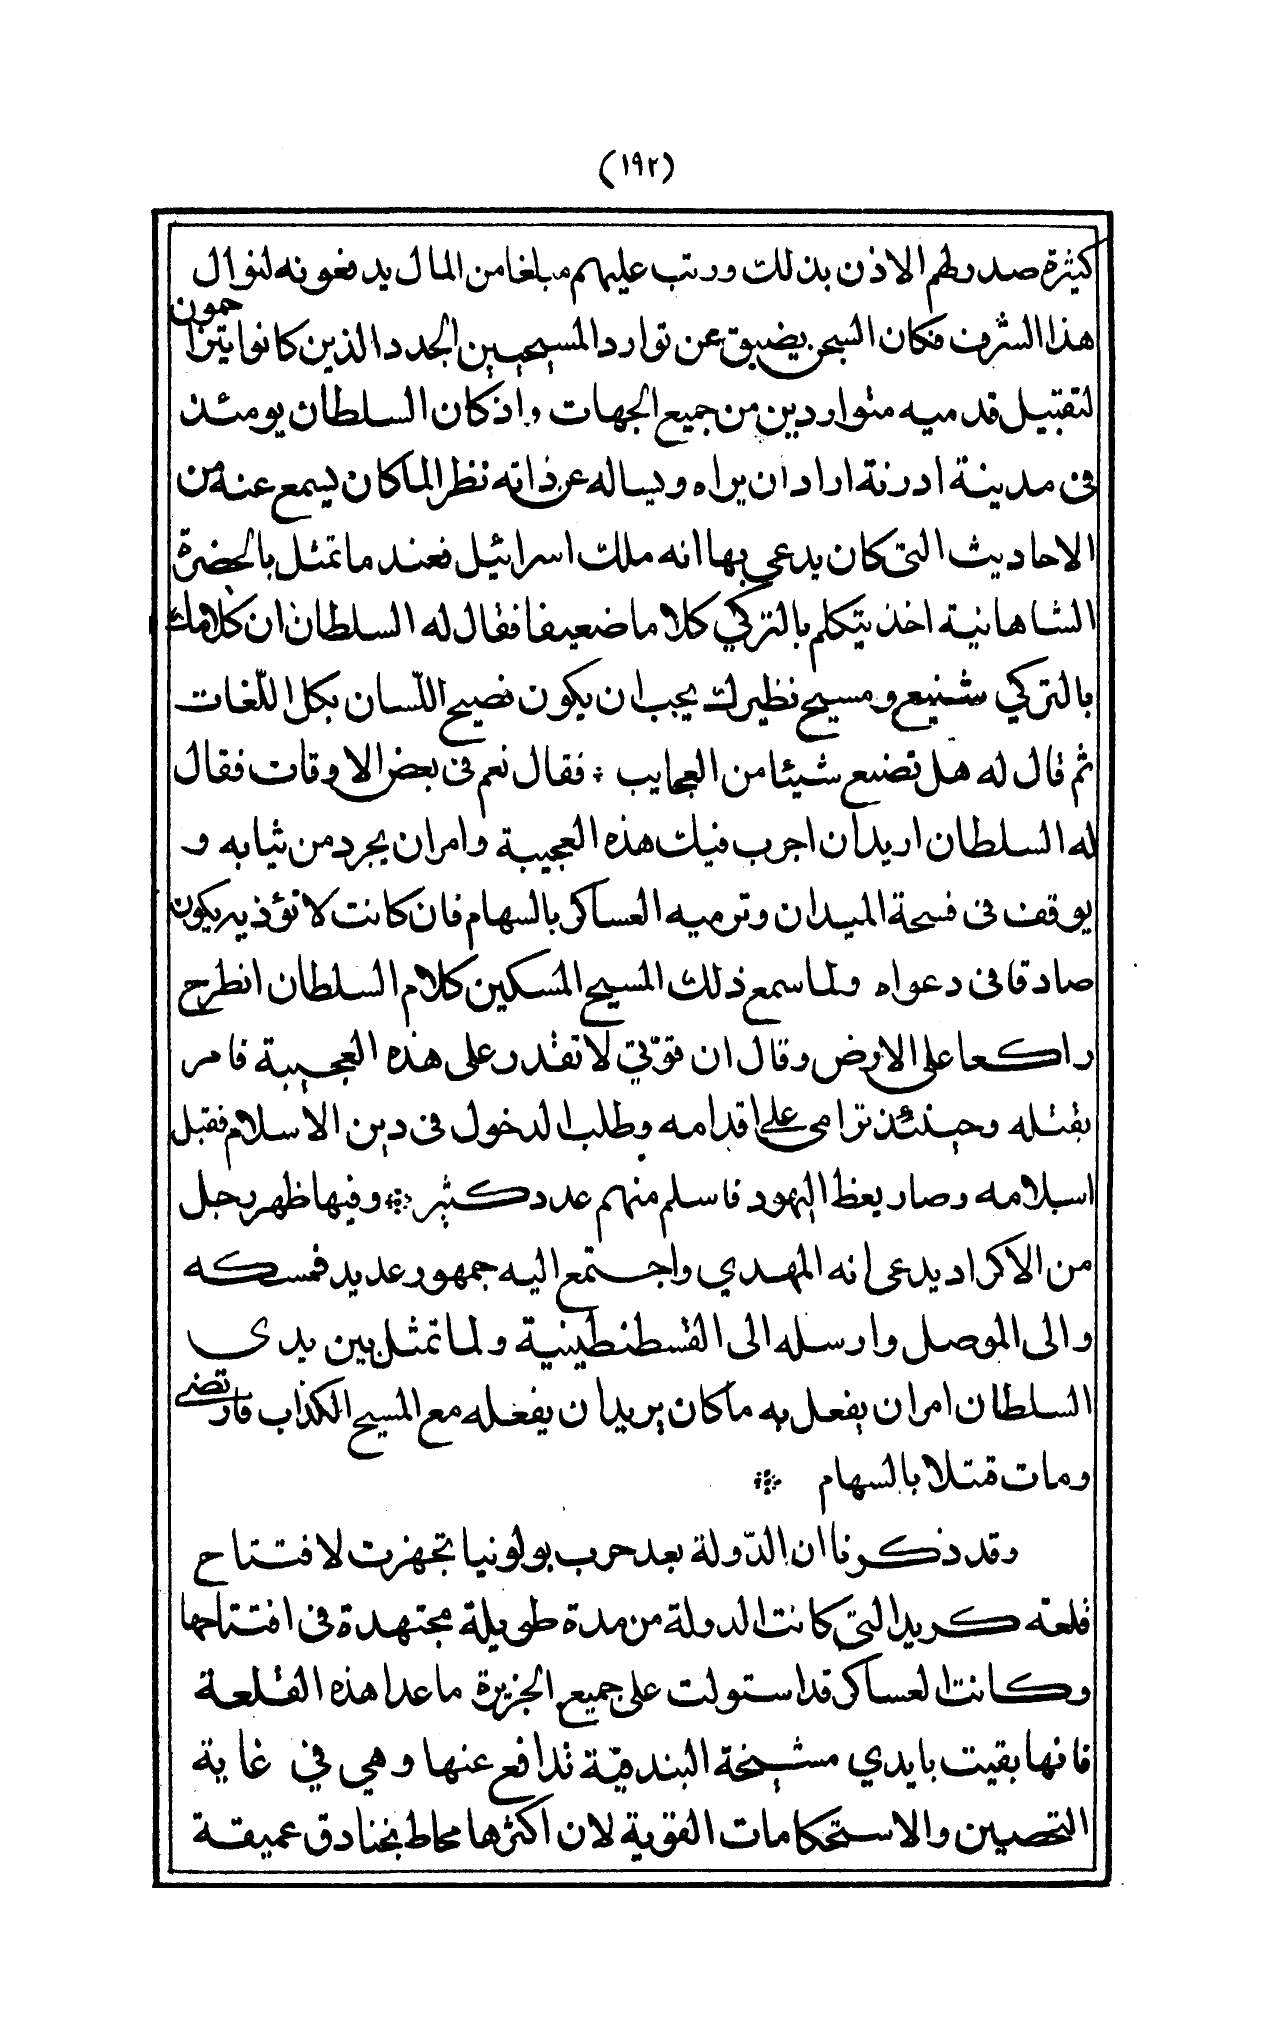 (١٩٢)
كثيرة صدر لهم الاذن بذلك ورتب عليهم مبلغا من المال يدفعونه لنوال
هذا الشرف فكان السجن يضيق عن توارد المسيحيين الجدد الذين كانوا يتزاحمون
لتقبيل قدميه متواردين من جميع الجهات واذ كان السلطان يومئذ
فى مدينة ادرنة اراد ان يراه ويساله عن ذاته نظرا لما كان يسمع عنه من
الاحاديث التى كان يدعى بها انه ملك اسرائيل فعند ما تمثل بالحضرة
الشاهانية اخذ يتكلم بالتركي كلاما ضعيفا فقال له السلطان ان كلامك
بالتركي شنيع ومسيح نظيرك يجب ان يكون فصيح اللّسان بكل اللّغات
ثم قال له هل تضع شيئا من العجايب ؞ فقال نعم فى بعض الاوقات فقال
له السلطان اريد ان اجرب فيك هذه العجيبة وامر ان يجرد من ثيابه و
يوقف فى فسحة الميدان وترميه العساكر بالسهام فان كانت لا تؤذيه يكون
صادقا فى دعواه ولما سمع ذلك المسيح المسكين كلام السلطان انطرح
راكعا على الارض وقال ان قوّتي لا تقدر على هذه العجيبة فامر
بقتله وحينئذ ترامى على اقدامه وطلب الدخول فى دين الاسلام فقبل
اسلامه وصار يعظ اليهود فاسلم منهم عدد كثير ؞ وفيها ظهر رجل
من الاكراد يدعى انه المهدي واجتمع اليه جمهور عديد فمسكه
والى الموصل وارسله الى القسطنطينية ولما تمثل بين يدى
السلطان امر ان يفعل به ما كان يريد ان يفعله مع المسيح الكذاب فارتضى
ومات قتلا بالسهام ؞
وقد ذكرنا ان الدّولة بعد حرب بولونيا تجهزت لافتتاح
قلعة كريد التي كانت الدولة من مدة طويلة مجتهدة فى افتتاحها
وكانت العساكر قد استولت على جميع الجزيرة ما عدا هذه القلعة
فانها بقيت بايدي مشيخة البندقيّة تدافع عنها وهي في غاية
التحصين والاستحكامات القوية لان اكثرها محاط بخنادق عميقة